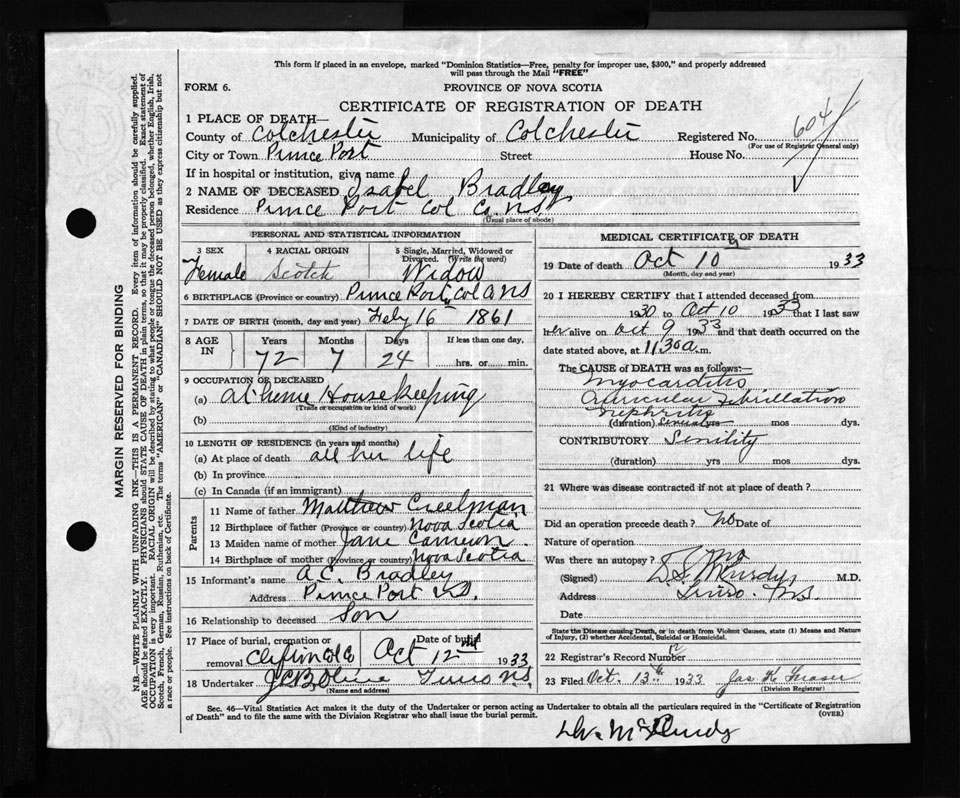 This form if placed in an envelope, marked "Dominion Statistics—Free, penalty for improper use, $300," and properly addressed
will pass through the Mail "FREE"
FORM 6.
PROVINCE OF NOVA SCOTIA
CERTIFICATE OF REGISTRATION OF DEATH
1 PLACE OF DEATH—
County of Colchester Municipality of Colchester Registered No. 604
(For use of Registrar General only)
City or Town Prince Port Street House No.
If in hospital or institution, give name
2 NAME OF DECEASED Isabel Bradley
Residence Prince Port Col Co. N.S.
(Usual place of abode)
PERSONAL AND STATISTICAL INFORMATION
3 SEX 4 RACIAL ORIGIN 5 Single, Married, Widowed or
Divorced. (Write the word)
Female Scotch Widow
6 BIRTHPLACE (Province or country) Prince Port, Col Co NS
7 DATE OF BIRTH (month, day and year) Feby 16 1861
8 AGE IN Years Months Days If less than one day,
72 7 24 hrs. or min.
9 OCCUPATION OF DECEASED
(a) at home Housekeeping
(Trade or occupation or kind of work)
(b)
(Kind of industry)
10 LENGTH OF RESIDENCE (in years and months)
(a) At place of death all her life
(b) In province
(c) In Canada (if an immigrant)
Parents
11 Name of father Matthew Creelman
12 Birthplace of father (Province or country) Nova Scotia
13 Maiden name of mother Jane Cameron
14 Birthplace of mother (Province or country) Nova Scotia
15 Informant's name A.C. Bradley
Address Prince Port N.S.
16 Relationship to deceased Son
17 Place of burial, cremation or Date of burial
removal Clifton Col Co Oct 12 1933
18 Undertaker Truro N.S.
(Name and address)
MEDICAL CERTIFICATE OF DEATH
19 Date of death Oct 10 1933
(Month, day and year)
20 I HEREBY CERTIFY that I attended deceased from
1930 to Oct 10 1933 that I last saw
her alive on Oct 9 1933 and that death occurred on
date stated above, at 11 30 a.m.
The CAUSE of DEATH was as follows:—
Myocarditis
Auricular Fibrillation
Nephritis
(duration) yrs mos dys.
CONTRIBUTORY Senility
(duration) yrs mos dys.
21 Where was disease contracted if not at place of death?
Did an operation precede death? No Date of
Nature of operation
Was there an autopsy? No
(Signed) D.S. McCurdy M.D.
Address Truro. N.S.
Date
State the Disease causing Death, or in death from Violent Causes, state (1) Means and Nature
of Injury, (2) whether Accidental, Suicidal or Homicidal.
22 Registrar's Record Number
23 Filed Oct. 13th 1933 Jas K Fraser
(Division Registrar)
Sec. 46—Vital Statistics Act makes it the duty of the Undertaker or person acting as Undertaker to obtain all the particulars required in the "Certificate of Registration
of Death" and to file the same with the Division Registrar who shall issue the burial permit.
(OVER)
Dr. McCurdy
MARGIN RESERVED FOR BINDING
N.B.—WRITE PLAINLY WITH UNFADING INK—THIS IS A PERMANENT RECORD. Every item of information should be carefully supplied.
AGE should be stated EXACTLY. PHYSICIANS should STATE CAUSE OF DEATH in plain terms, so that it may be properly classified. Exact statement of
OCCUPATION is very important. RACIAL ORIGIN will be described by stating to what people or tongue the deceased person belonged, whether English, Irish,
Scotch, French, German, Russian, Ruthenian, etc. The terms "AMERICAN" or "CANADIAN" SHOULD NOT BE USED as they express citizenship but not
a race or people. See instructions on back of Certificate.